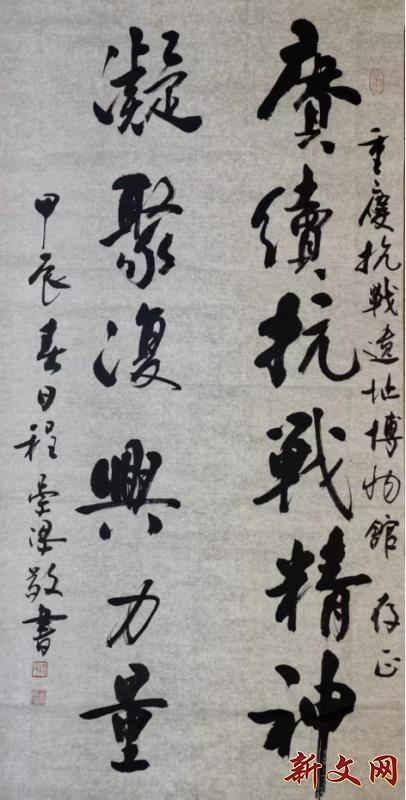 重慶抗戰遺址博物館 存正
賡續抗戰精神
凝聚復興力量
甲辰春日程梁敬書
新文网